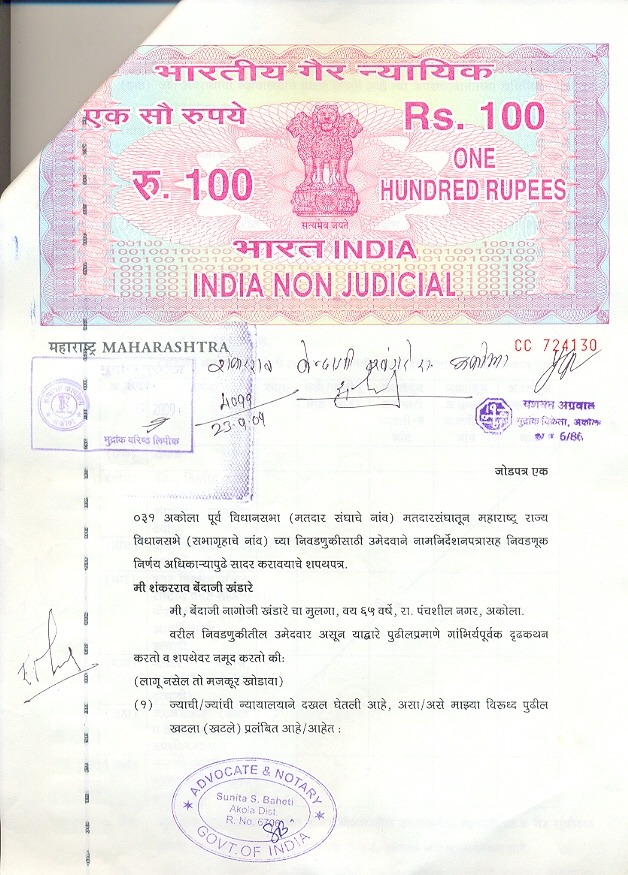 भारतीय गैर न्यायिक
एक सौ रुपये
Rs. 100
रु. 100
ONE
HUNDRED RUPEES
सत्यमेव जयते
भारत INDIA
INDIA NON JUDICIAL
महाराष्ट्र MAHARASHTRA
CC 724130
4099
23.9.09
मुद्रांक वरिष्ठ लिपीक
मुद्रांक विक्रेता, अकोला
6/86
जोडपत्र एक
०३१ अकोला पूर्व विधानसभा (मतदार संघाचे नांव) मतदारसंघातून महाराष्ट्र राज्य
विधानसभे (सभागृहाचे नांव) च्या निवडणुकीसाठी उमेदवाने नामनिर्देशनपत्रासह निवडणूक
निर्णय अधिकाऱ्यापुढे सादर करावयाचे शपथपत्र.
मी शंकरराव बेंदाजी खंडारे
मी, बेंदाजी नागोजी खंडारे चा मुलगा, वय ६५ वर्षे, रा. पंचशील नगर, अकोला.
वरील निवडणुकीतील उमेदवार असून याद्वारे पुढीलप्रमाणे गांभिर्यपूर्वक दृढकथन
करतो व शपथेवर नमूद करतो की:
(लागू नसेल तो मजकूर खोडावा)
(१) ज्याची/ज्यांची न्यायालयाने दखल घेतली आहे, असा/असे माझ्या विरूध्द पुढील
खटला (खटले) प्रलंबित आहे/आहेत :
ADVOCATE & NOTARY
Sunita S. Baheti
Akola Dist.
R. No.
GOVT. OF INDIA